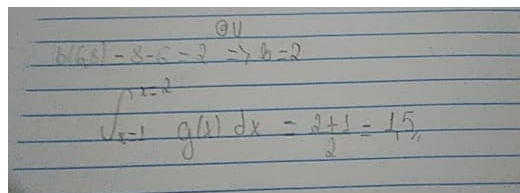 b(6,8) - 8-6 = 2 => b=2
∫ x=2 x=1 g(x) dx = 2+1/2 = 1,5